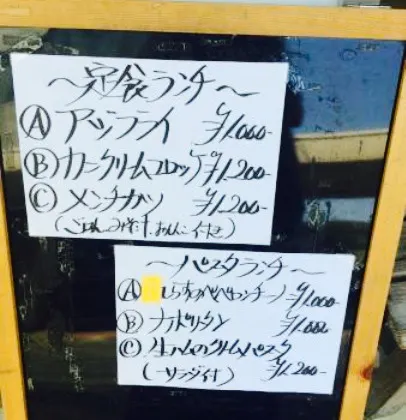 ～定食ランチ～
Ⓐアジフライ ¥1,000-
Ⓑカニクリームコロッケ ¥1,200-
Ⓒメンチカツ ¥1,200-
(ごはん、みそ汁、おしんこ付き)
～パスタランチ～
Ⓐしらすのペペロンチーノ ¥1,000-
Ⓑナポリタン ¥1,000
Ⓒ生ハムのクリームパスタ
(サラダ付) ¥1,200-